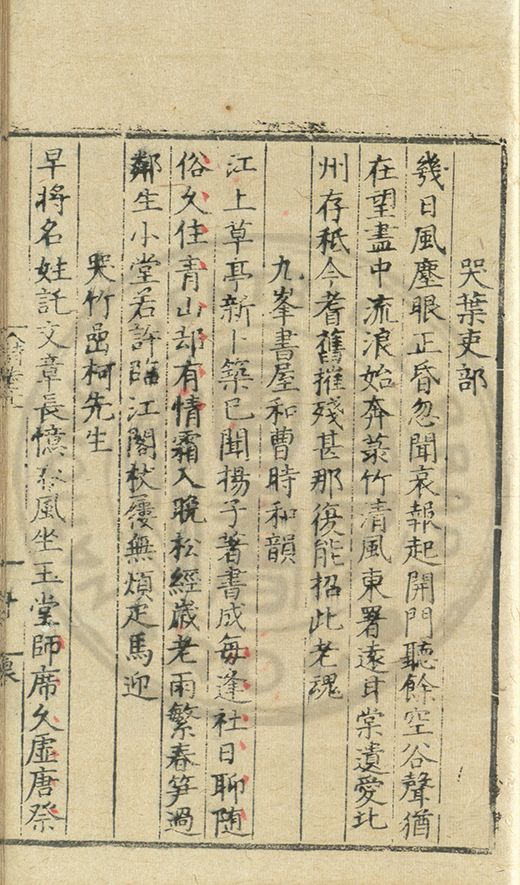 哭葉吏部
幾日風塵眼正昏忽聞哀報起開門聽餘空谷聲猶
在望盡中流浪始奔菉竹清風東署遠甘棠遺愛北
州存秪今耆舊摧殘甚那復能招此老魂
九峯書屋和曹時和韻
江上草亭新卜築已聞揚子著書成每逢社日聊随
俗久住青山却有情霜入晩松經歲老雨繁春笋過
鄰生小堂若許臨江閣杖屨無煩走馬迎
哭竹嵒柯先生
早將名姓託文章長憶春風坐玉堂師席久虛唐祭